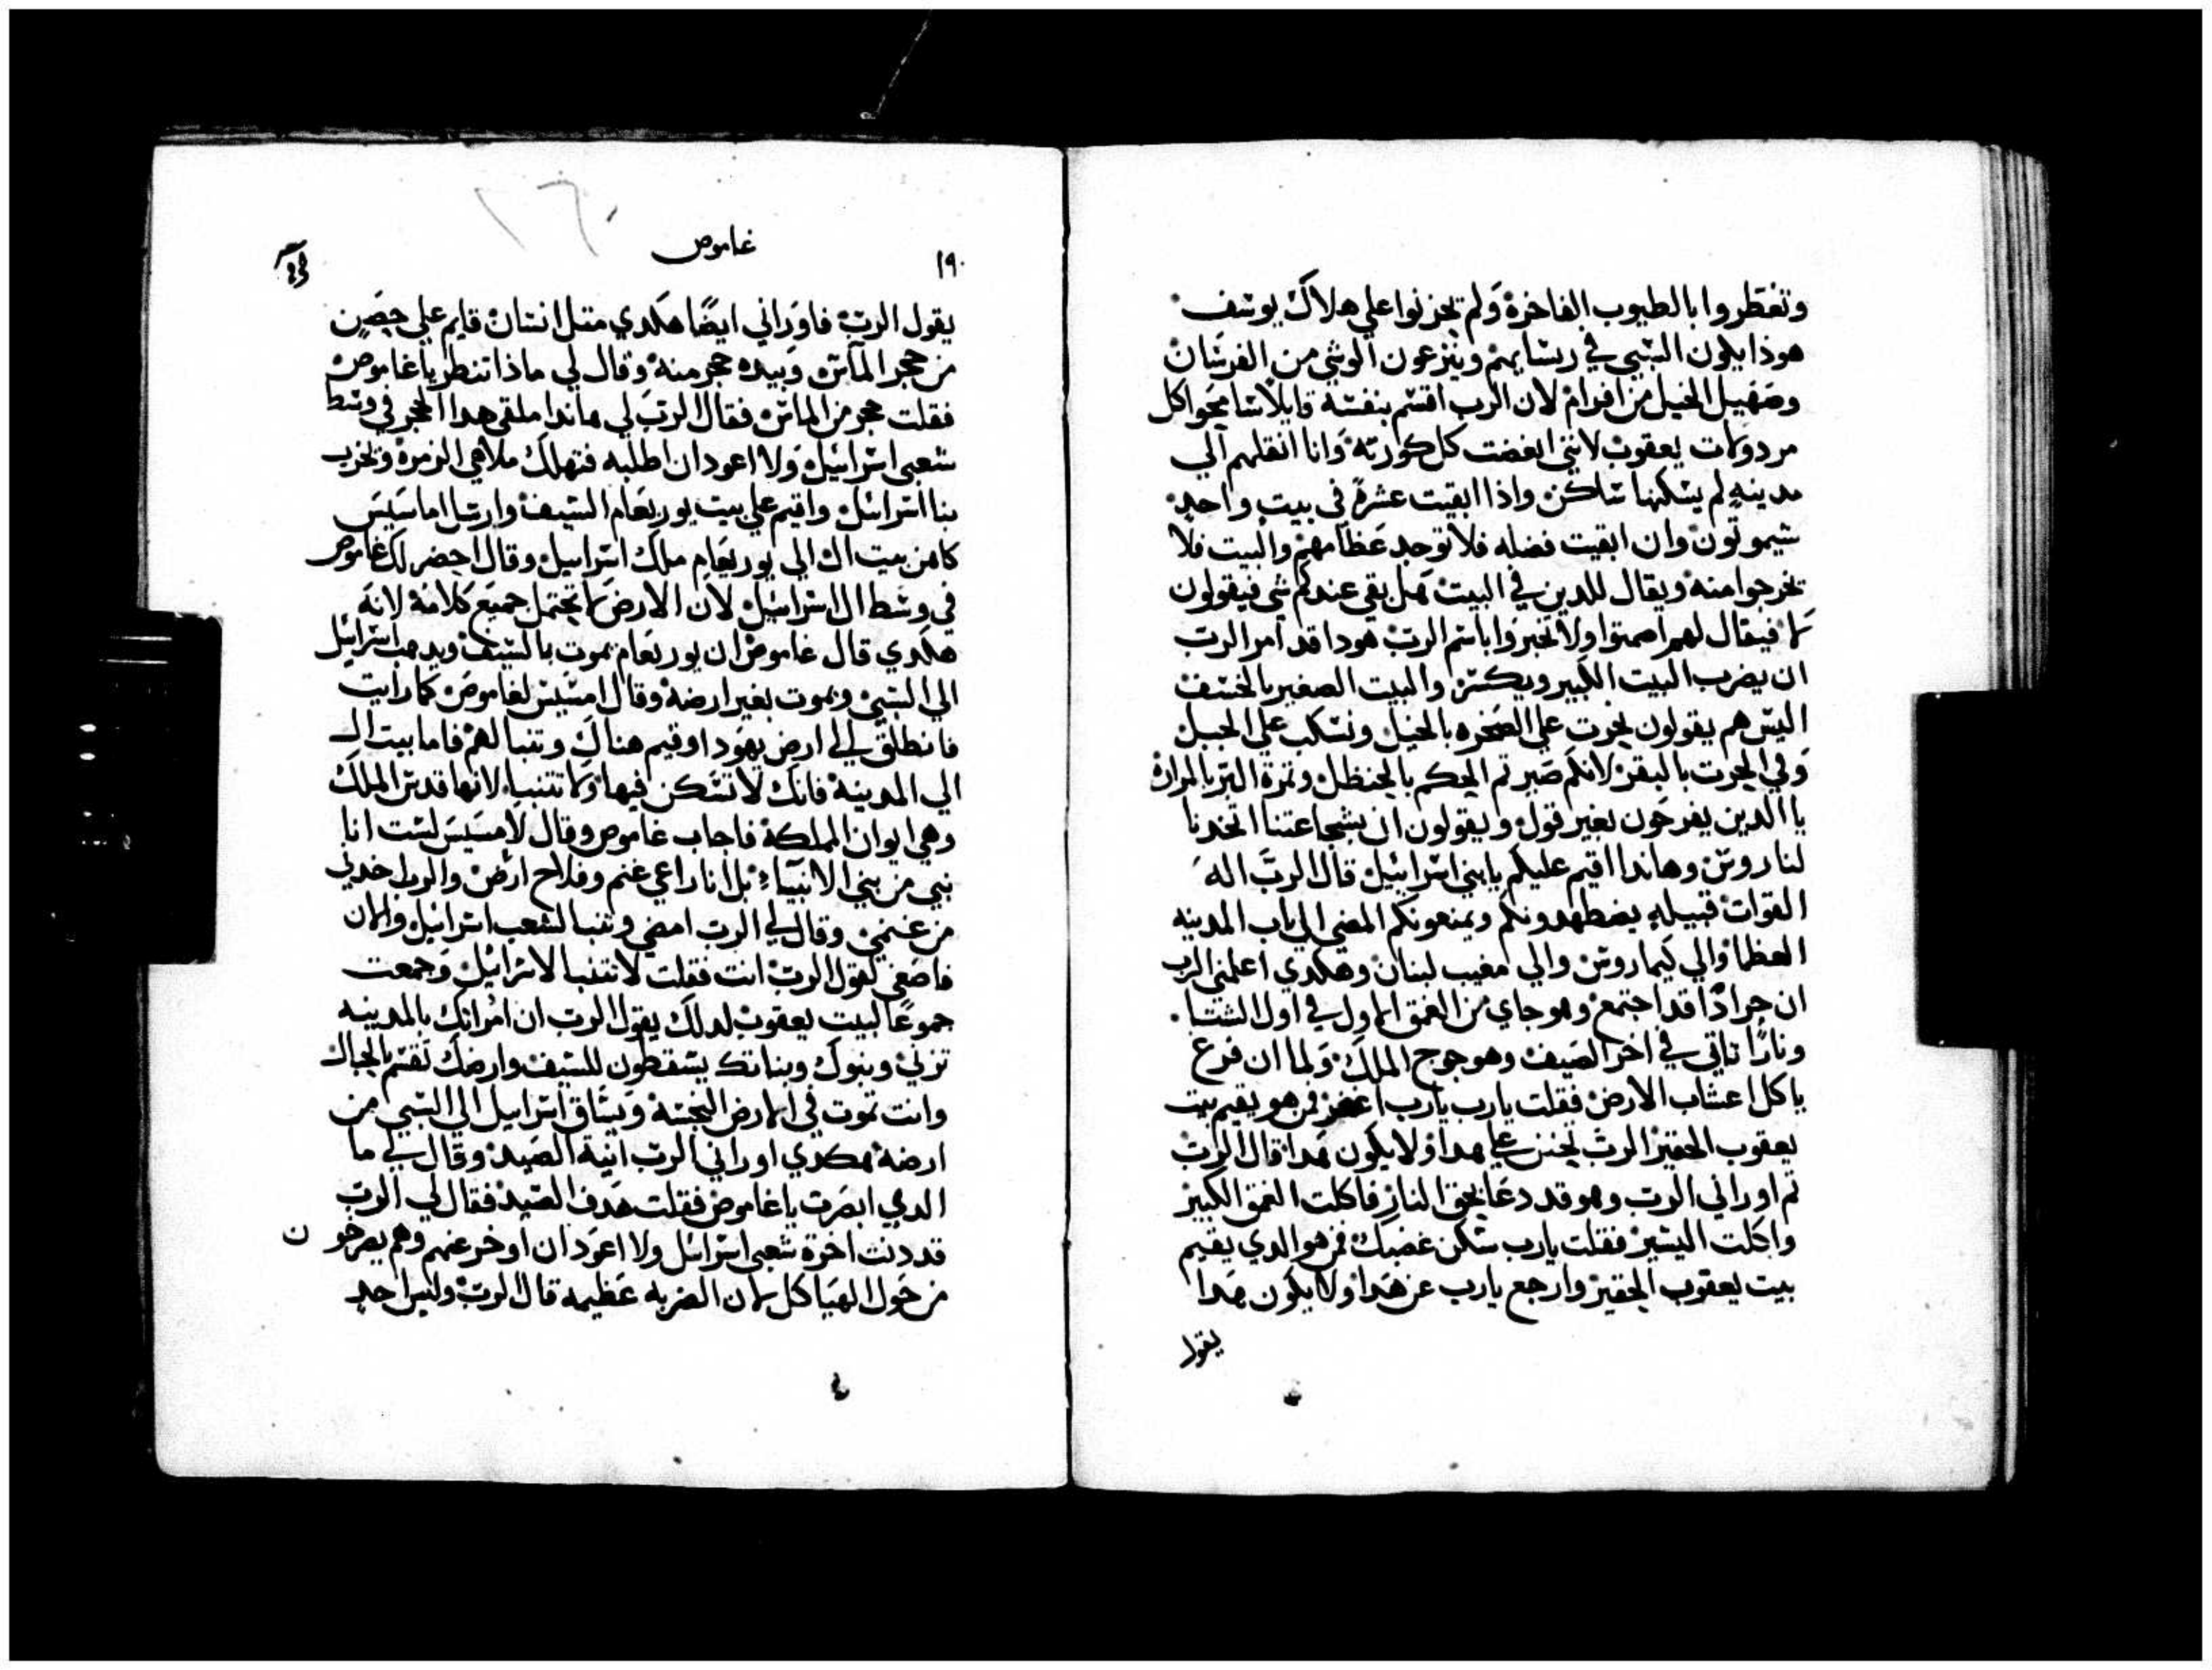 وتغطروا بالطيوب الفاخرة ولم تحزنوا علي هلاك يوسف
هوذا يكون السبي في ريسايهم وينزعون الوشي من الفرسان
وصهيل الخيل من افرام لان الرب اقسم بنفسه قايلا سامحوا كل
مردولات يعقوب لانني ابغضت كل كورته وانا انقلهم الي
مدينه لم يسكنها ساكن واذا ابقيت عشرة في بيت واحد
سيموتون وان ابقيت فضله فلا توجد عظامهم والبيت فلا
يخرجوا منه ويقال للدين في البيت هل بقي عندكم شي فيقولون
لا فيقال لهم اصمتوا ولا تخبروا باسم الرب هودا قد امر الرب
ان يضرب البيت الكبير ويكسر والبيت الصغير بالخسف
اليس هم يقولون يحرت علي الصخره بالخيل ونسكب علي الجبل
وفي الحرت بالبقر لانكم صيرتم الحكم بالحنظل وتمرة البر بالمرارة
يا الدين يفرحون بغير قول ويقولون ان بشجاعتنا اتخدنا
لنا روس وهاندا اقيم عليكم يا بني اسراييل قال الرب اله
القوات قبيله يضطهدونكم ويمنعونكم المضي الي باب المدينه
العظما والي كيماروس والي مغيب لبنان وهكدي اعلمني الرب
ان جرادا قد اجتمع وهو جاي من العمق الاول في اول الشتا
ونارا تاتي في اخر الصيف وهو جوج الملك ولما ان فرغ
ياكل اعشاب الارض فقلت يارب يارب اغفر فمن هو يقيم بيت
يعقوب الحقير الرب يحنن علي هدا ولا يكون هدا قال الرب
تم اوراني الرب وهو قد دعا بحق النار فاكلت العمق الكبير
واكلت اليسير فقلت يارب سكن غضبك فمن هو الدي يقيم
بيت يعقوب الحقير وارجع يارب عن هدا ولا يكون هدا
يقول
١٩٠
غاموص
يقول الرب فاوراني ايضا هكدي متل انسان قايم علي حصن
من حجر الماس وبيده حجر منه وقال لي ماذا تنظر يا غاموص
فقلت حجر من الماس فقال الرب لي هاندا ملقي هدا الحجر في وسط
شعبي اسراييل ولا اعود ان اطلبه فتهلك ملاهي الزمرة وتخرب
بنا اسراييل واقيم علي بيت يوربعام السيف وارسل اماسيس
كاهن بيت ال الي يوربعام ملك اسراييل وقال احضر لك غاموص
في وسط ال اسراييل لان الارض لا تحتمل جميع كلامه لانه
هكدي قال غاموص ان يوربعام يموت بالسيف ويدهب اسراييل
الي السبي ويموت بغير ارضه وقال امسيس لغاموص كما رايت
فانطلق الي ارض يهودا وقيم هناك وتنبا لهم فاما بيت ال
الي المدينة فانك لا تسكن فيها ولا تتنبا لانها قدس الملك
وهي ايوان المملكة فاجاب غاموص وقال لامسيس لست انا
نبي من بني الانبياء بل انا راعي غنم وفلاح ارض والرب اخدني
من غنمي وقال لي الرب امضي وتنبا لشعب اسراييل والان
فاصغي لقول الرب انت فقلت لا تتنبا لاسراييل وجمعت
جموعا لبيت يعقوب لدلك يقول الرب ان امراتك بالمدينه
تزني وبنوك وبناتك يسقطون للسيف وارضك تقسم بالحبال
وانت تموت في الارض النجسة ويساق اسراييل الي السبي من
ارضه هكدي اوراني الرب انية الصيد وقال لي ما
الدي ابصرت يا غاموص فقلت هدف الصيد فقال لي الرب
قد دنت اخرة شعبي اسراييل ولا اعود ان اوخر عنهم وهم يصرخون
من حول الهياكل لان الضربه عظيمه قال الرب وليس احد